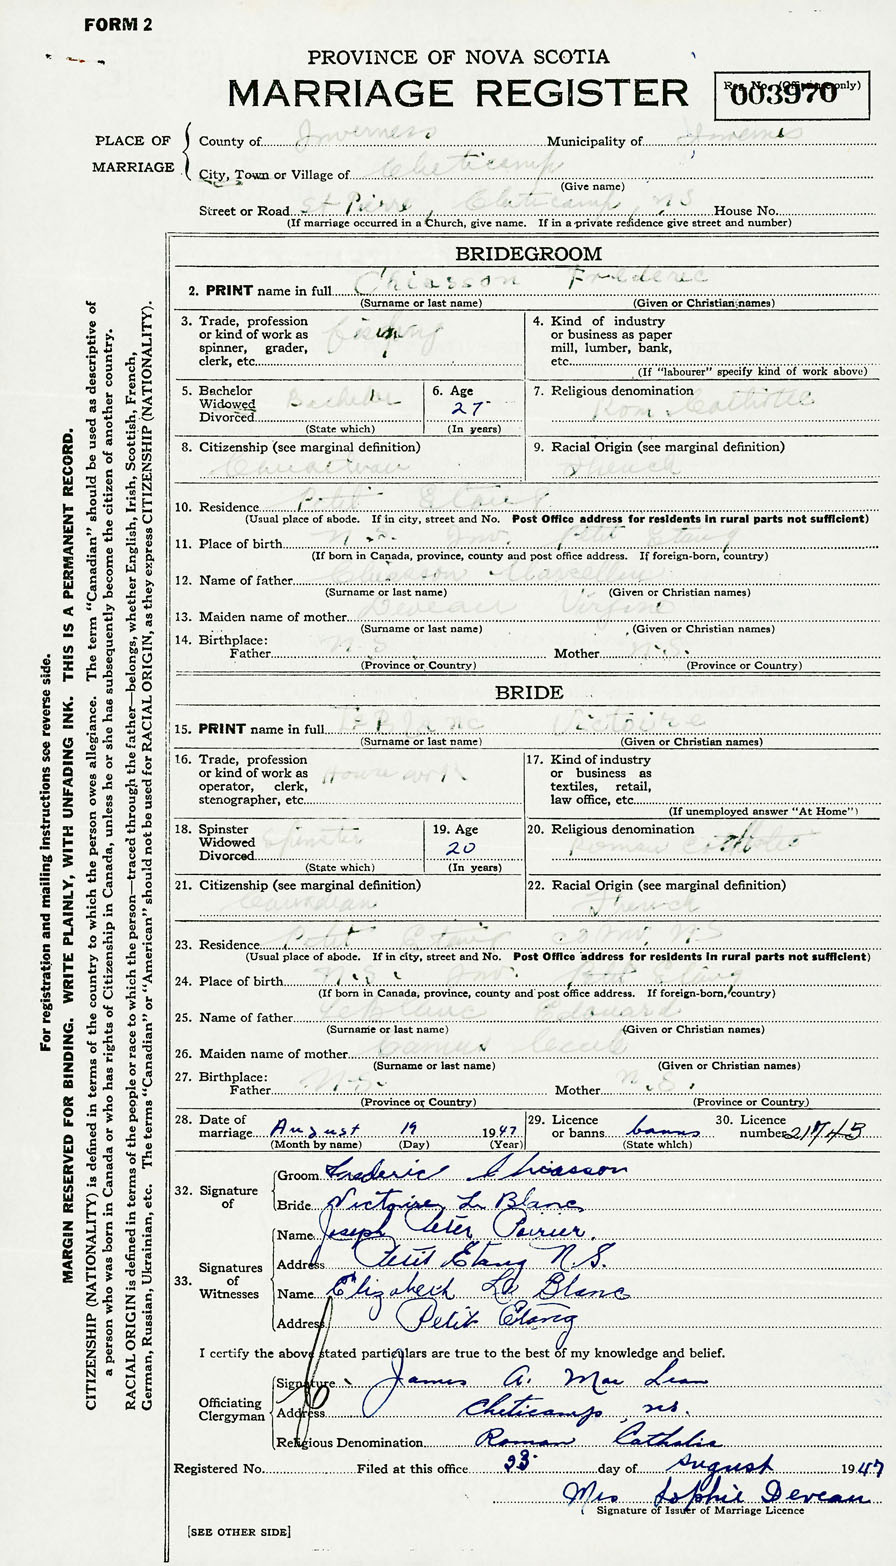 FORM 2
PROVINCE OF NOVA SCOTIA
MARRIAGE REGISTER
Reg. No. (Office use only)
003970
PLACE OF MARRIAGE
County of Inverness Municipality of Inverness
City, Town or Village of Cheticamp
(Give name)
Street or Road St Pierre, Cheticamp, NS House No.
(If marriage occurred in a Church, give name. If in a private residence give street and number)
BRIDEGROOM
2. PRINT name in full Chiasson Frederic
(Surname or last name) (Given or Christian names)
3. Trade, profession or kind of work as spinner, grader, clerk, etc. fishing
4. Kind of industry or business as paper mill, lumber, bank, etc.
(If "labourer" specify kind of work above)
5. Bachelor Widowed Divorced Bachelor
(State which)
6. Age 27
(In years)
7. Religious denomination Rom. Catholic
8. Citizenship (see marginal definition) Canadian
9. Racial Origin (see marginal definition) French
10. Residence Petit Etang
(Usual place of abode. If in city, street and No. Post Office address for residents in rural parts not sufficient)
11. Place of birth N.S. Inv. Petit Etang
(If born in Canada, province, county and post office address. If foreign-born, country)
12. Name of father Chiasson Marcellin
(Surname or last name) (Given or Christian names)
13. Maiden name of mother Deveau Virginie
(Surname or last name) (Given or Christian names)
14. Birthplace:
Father N.S. Mother N.S.
(Province or Country) (Province or Country)
BRIDE
15. PRINT name in full LeBlanc Victoire
(Surname or last name) (Given or Christian names)
16. Trade, profession or kind of work as operator, clerk, stenographer, etc. House work
17. Kind of industry or business as textiles, retail, law office, etc.
(If unemployed answer "At Home")
18. Spinster Widowed Divorced Spinster
(State which)
19. Age 20
(In years)
20. Religious denomination Roman Catholic
21. Citizenship (see marginal definition) Canadian
22. Racial Origin (see marginal definition) French
23. Residence Petit Etang Inv. N.S
(Usual place of abode. If in city, street and No. Post Office address for residents in rural parts not sufficient)
24. Place of birth N.S. Inv. Petit Etang
(If born in Canada, province, county and post office address. If foreign-born, country)
25. Name of father LeBlanc Edouard
(Surname or last name) (Given or Christian names)
26. Maiden name of mother Camus Cecile
(Surname or last name) (Given or Christian names)
27. Birthplace:
Father N.S. Mother N.S.
(Province or Country) (Province or Country)
28. Date of marriage August 19 1947
(Month by name) (Day) (Year)
29. Licence or banns banns
(State which)
30. Licence number 21743
32. Signature of
Groom Frederic Chiasson
Bride Victoire Le Blanc
33. Signatures of Witnesses
Name Joseph Peter Poirier
Address Petit Etang N.S.
Name Elizabeth Le Blanc
Address Petit Etang
I certify the above stated particulars are true to the best of my knowledge and belief.
Officiating Clergyman
Signature James A. MacLean
Address Cheticamp, N.S.
Religious Denomination Roman Catholic
Registered No. Filed at this office 23 day of August 1947
Mrs Sophie Deveau
Signature of Issuer of Marriage Licence
[SEE OTHER SIDE]
For registration and mailing instructions see reverse side.
MARGIN RESERVED FOR BINDING. WRITE PLAINLY, WITH UNFADING INK. THIS IS A PERMANENT RECORD.
CITIZENSHIP (NATIONALITY) is defined in terms of the country to which the person owes allegiance. The term "Canadian" should be used as descriptive of
a person who was born in Canada or who has rights of Citizenship in Canada, unless he or she has subsequently become the citizen of another country.
RACIAL ORIGIN is defined in terms of the people or race to which the person—traced through the father—belongs, whether English, Irish, Scottish, French,
German, Russian, Ukrainian, etc. The terms "Canadian" or "American" should not be used for RACIAL ORIGIN, as they express CITIZENSHIP (NATIONALITY).